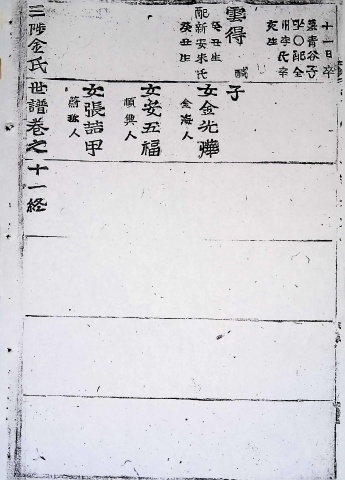 十一日卒
墓靑谷子
坐○配全
州李氏辛
亥生
雲得
癸丑生
配新安朱氏
癸丑生
子
女金光燁
金海人
女安五福
順興人
女張喆甲
蔚珍人
三陟金氏世譜卷之十一終